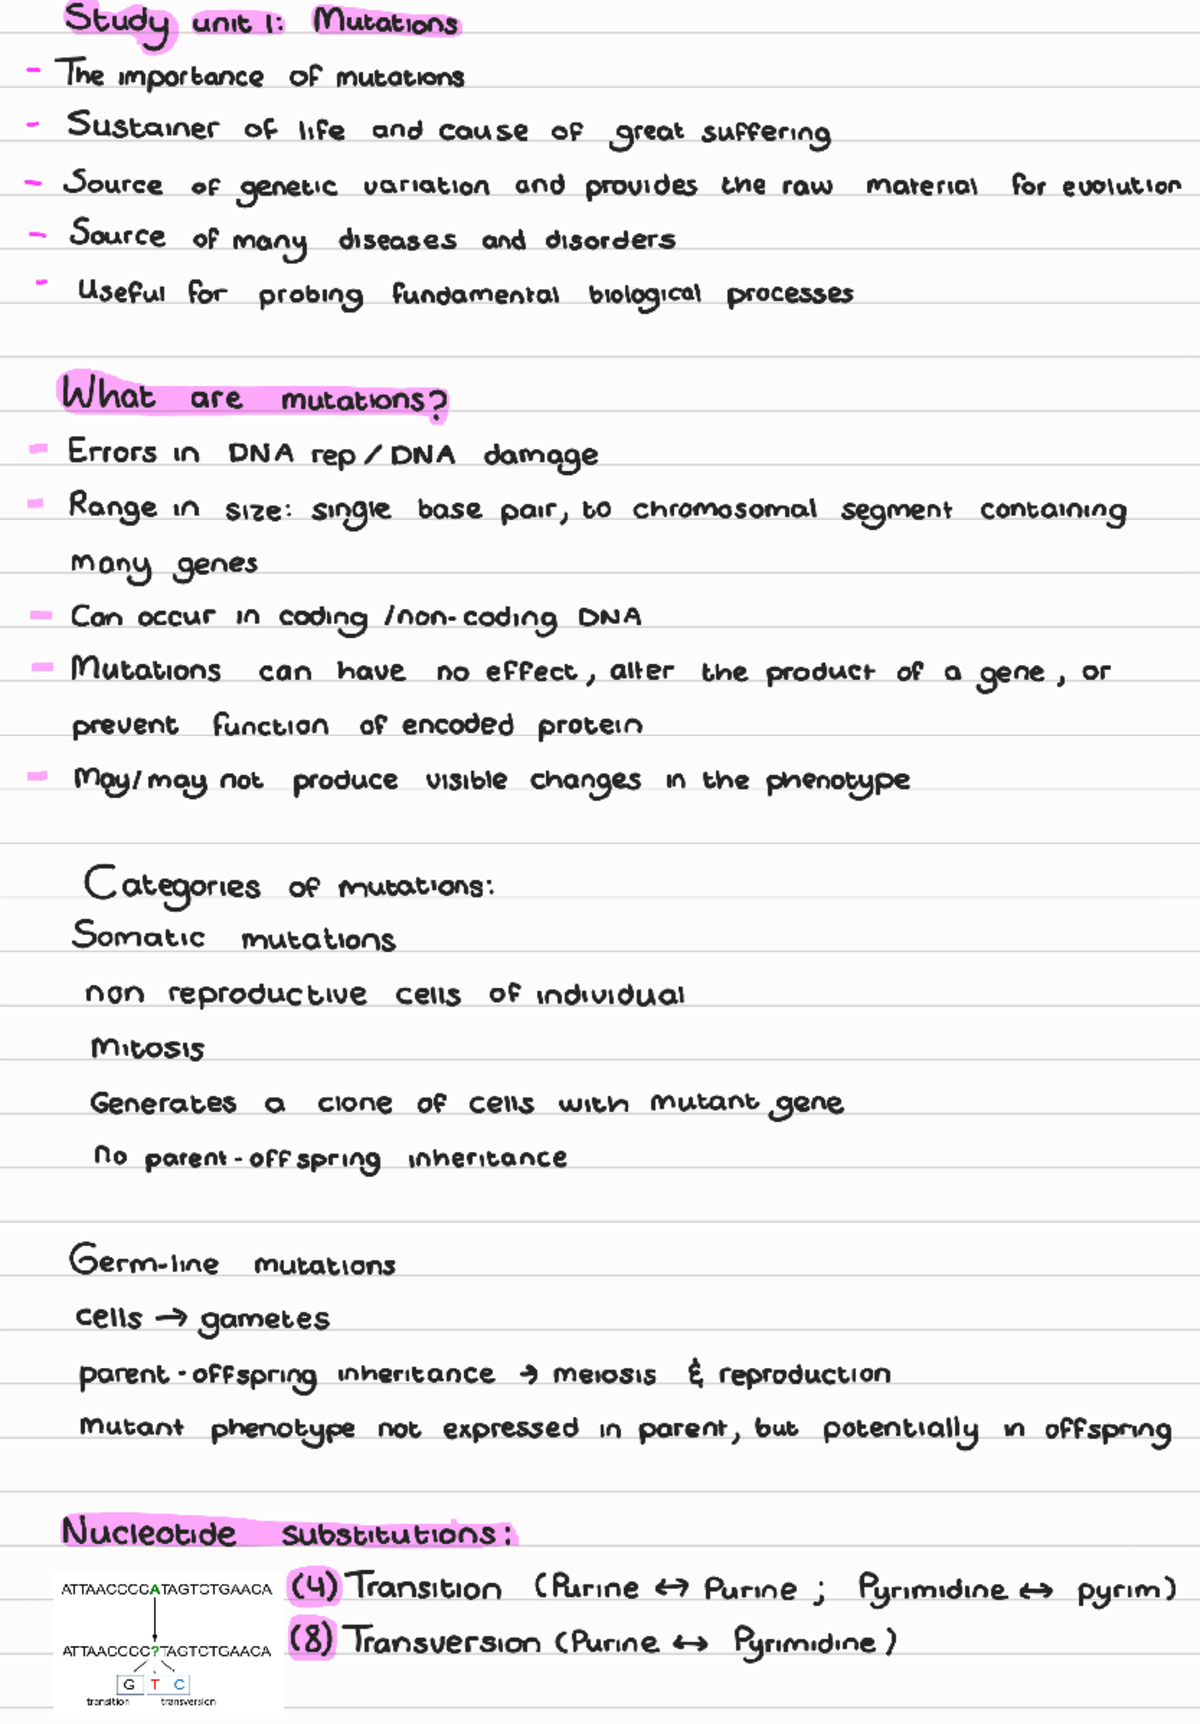 Study unit 1: Mutations
- The importance of mutations
- Sustainer of life and cause of great suffering
- Source of genetic variation and provides the raw material for evolution
- Source of many diseases and disorders
- Useful for probing fundamental biological processes
What are mutations?
- Errors in DNA rep / DNA damage
- Range in size: single base pair, to chromosomal segment containing
many genes
- Can occur in coding /non-coding DNA
- Mutations can have no effect, alter the product of a gene, or
prevent function of encoded protein
- May/may not produce visible changes in the phenotype
Categories of mutations:
Somatic mutations
non reproductive cells of individual
Mitosis
Generates a clone of cells with mutant gene
No parent-offspring inheritance
Germ-line mutations
cells → gametes
parent-offspring inheritance → meiosis & reproduction
Mutant phenotype not expressed in parent, but potentially in offspring
Nucleotide substitutions:
ATTAACCCCATAGTCTGAACA (4) Transition (Purine ↔ Purine ; Pyrimidine ↔ pyrim)
ATTAACCCC?TAGTCTGAACA (8) Transversion (Purine ↔ Pyrimidine)
G T C
transition transversion